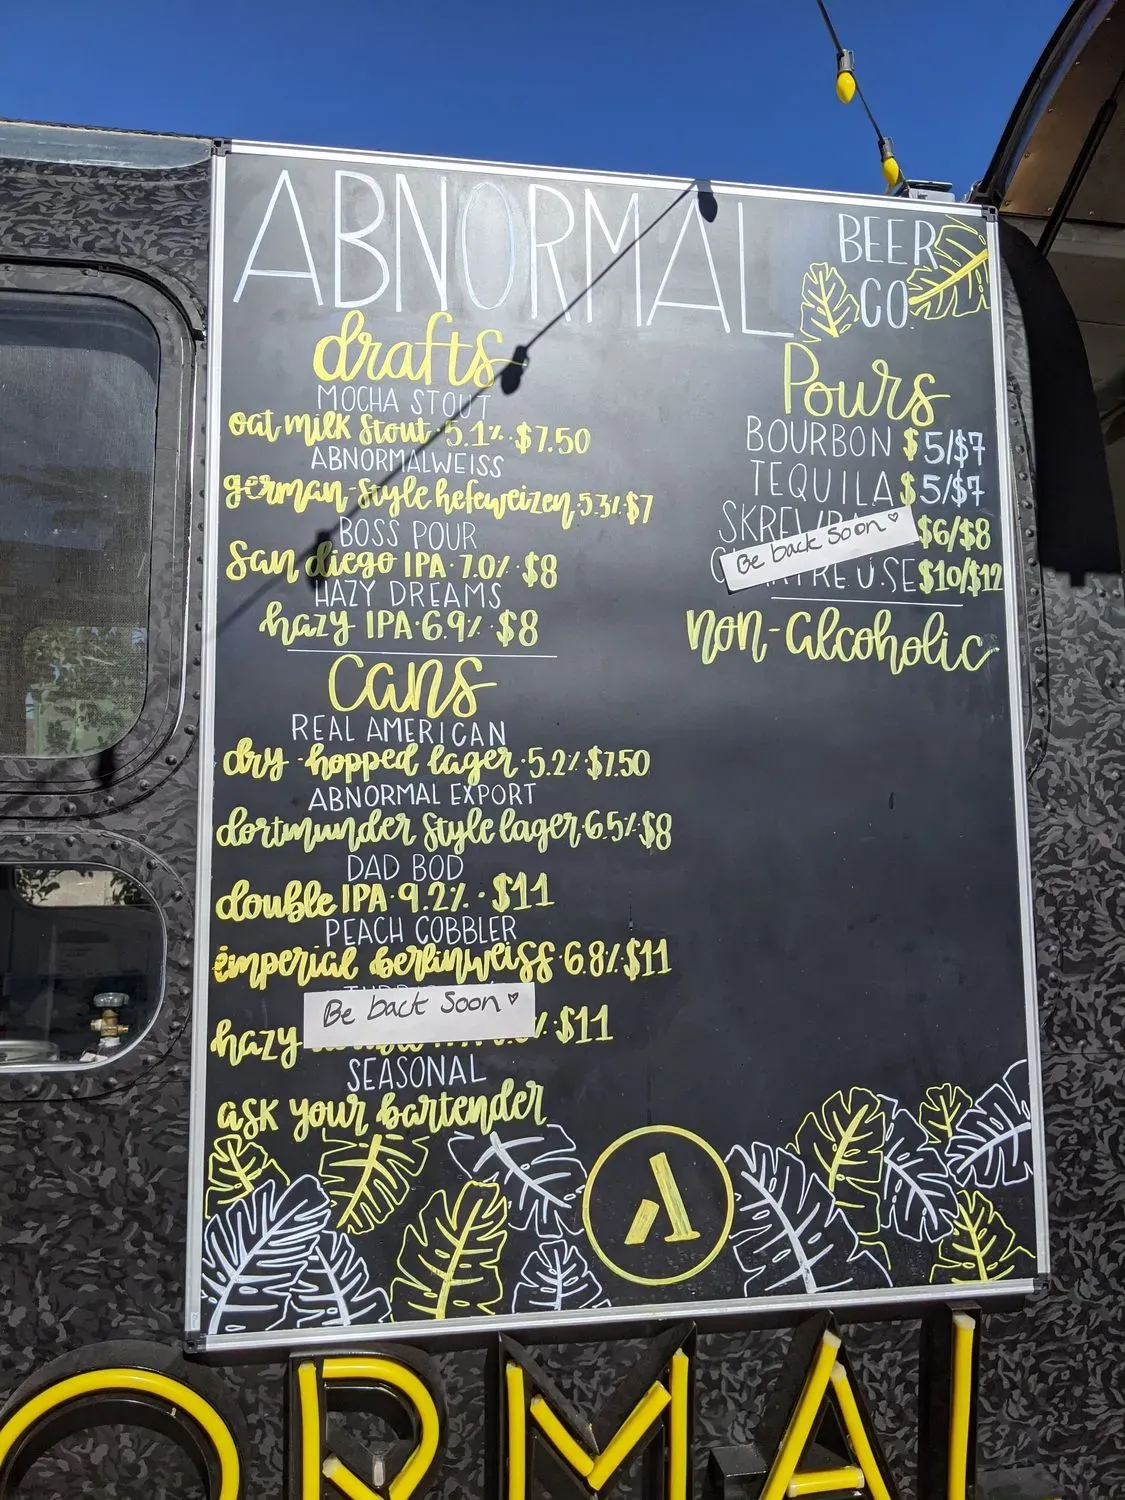 ABNORMAL
BEER
CO.
drafts
MOCHA STOUT
oat milk stout · 5.1% · $7.50
ABNORMALWEISS
german-style hefeweizen 5.3% · $7
BOSS POUR
San diego IPA · 7.0% · $8
HAZY DREAMS
hazy IPA · 6.9% · $8
cans
REAL AMERICAN
dry-hopped lager · 5.2% · $7.50
ABNORMAL EXPORT
dortmunder style lager · 6.5% · $8
DAD BOD
double IPA · 9.2% · $11
PEACH COBBLER
imperial berlinweiss · 6.8% · $11
Be back soon
hazy % · $11
SEASONAL
ask your bartender
Pours
BOURBON $5/$7
TEQUILA $5/$7
$6/$8
Be back soon
$10/$12
non-alcoholic
ORMAL